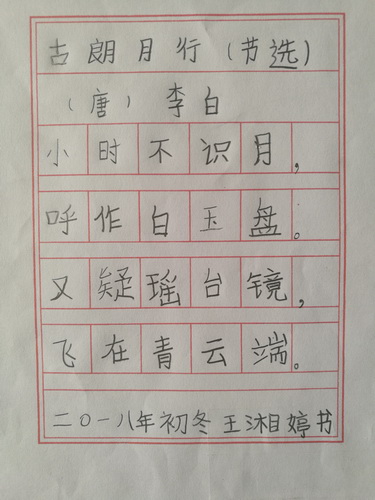 古朗月行（节选）
（唐）李白
小时不识月，
呼作白玉盘。
又疑瑶台镜，
飞在青云端。
二〇一八年初冬王湘婷书